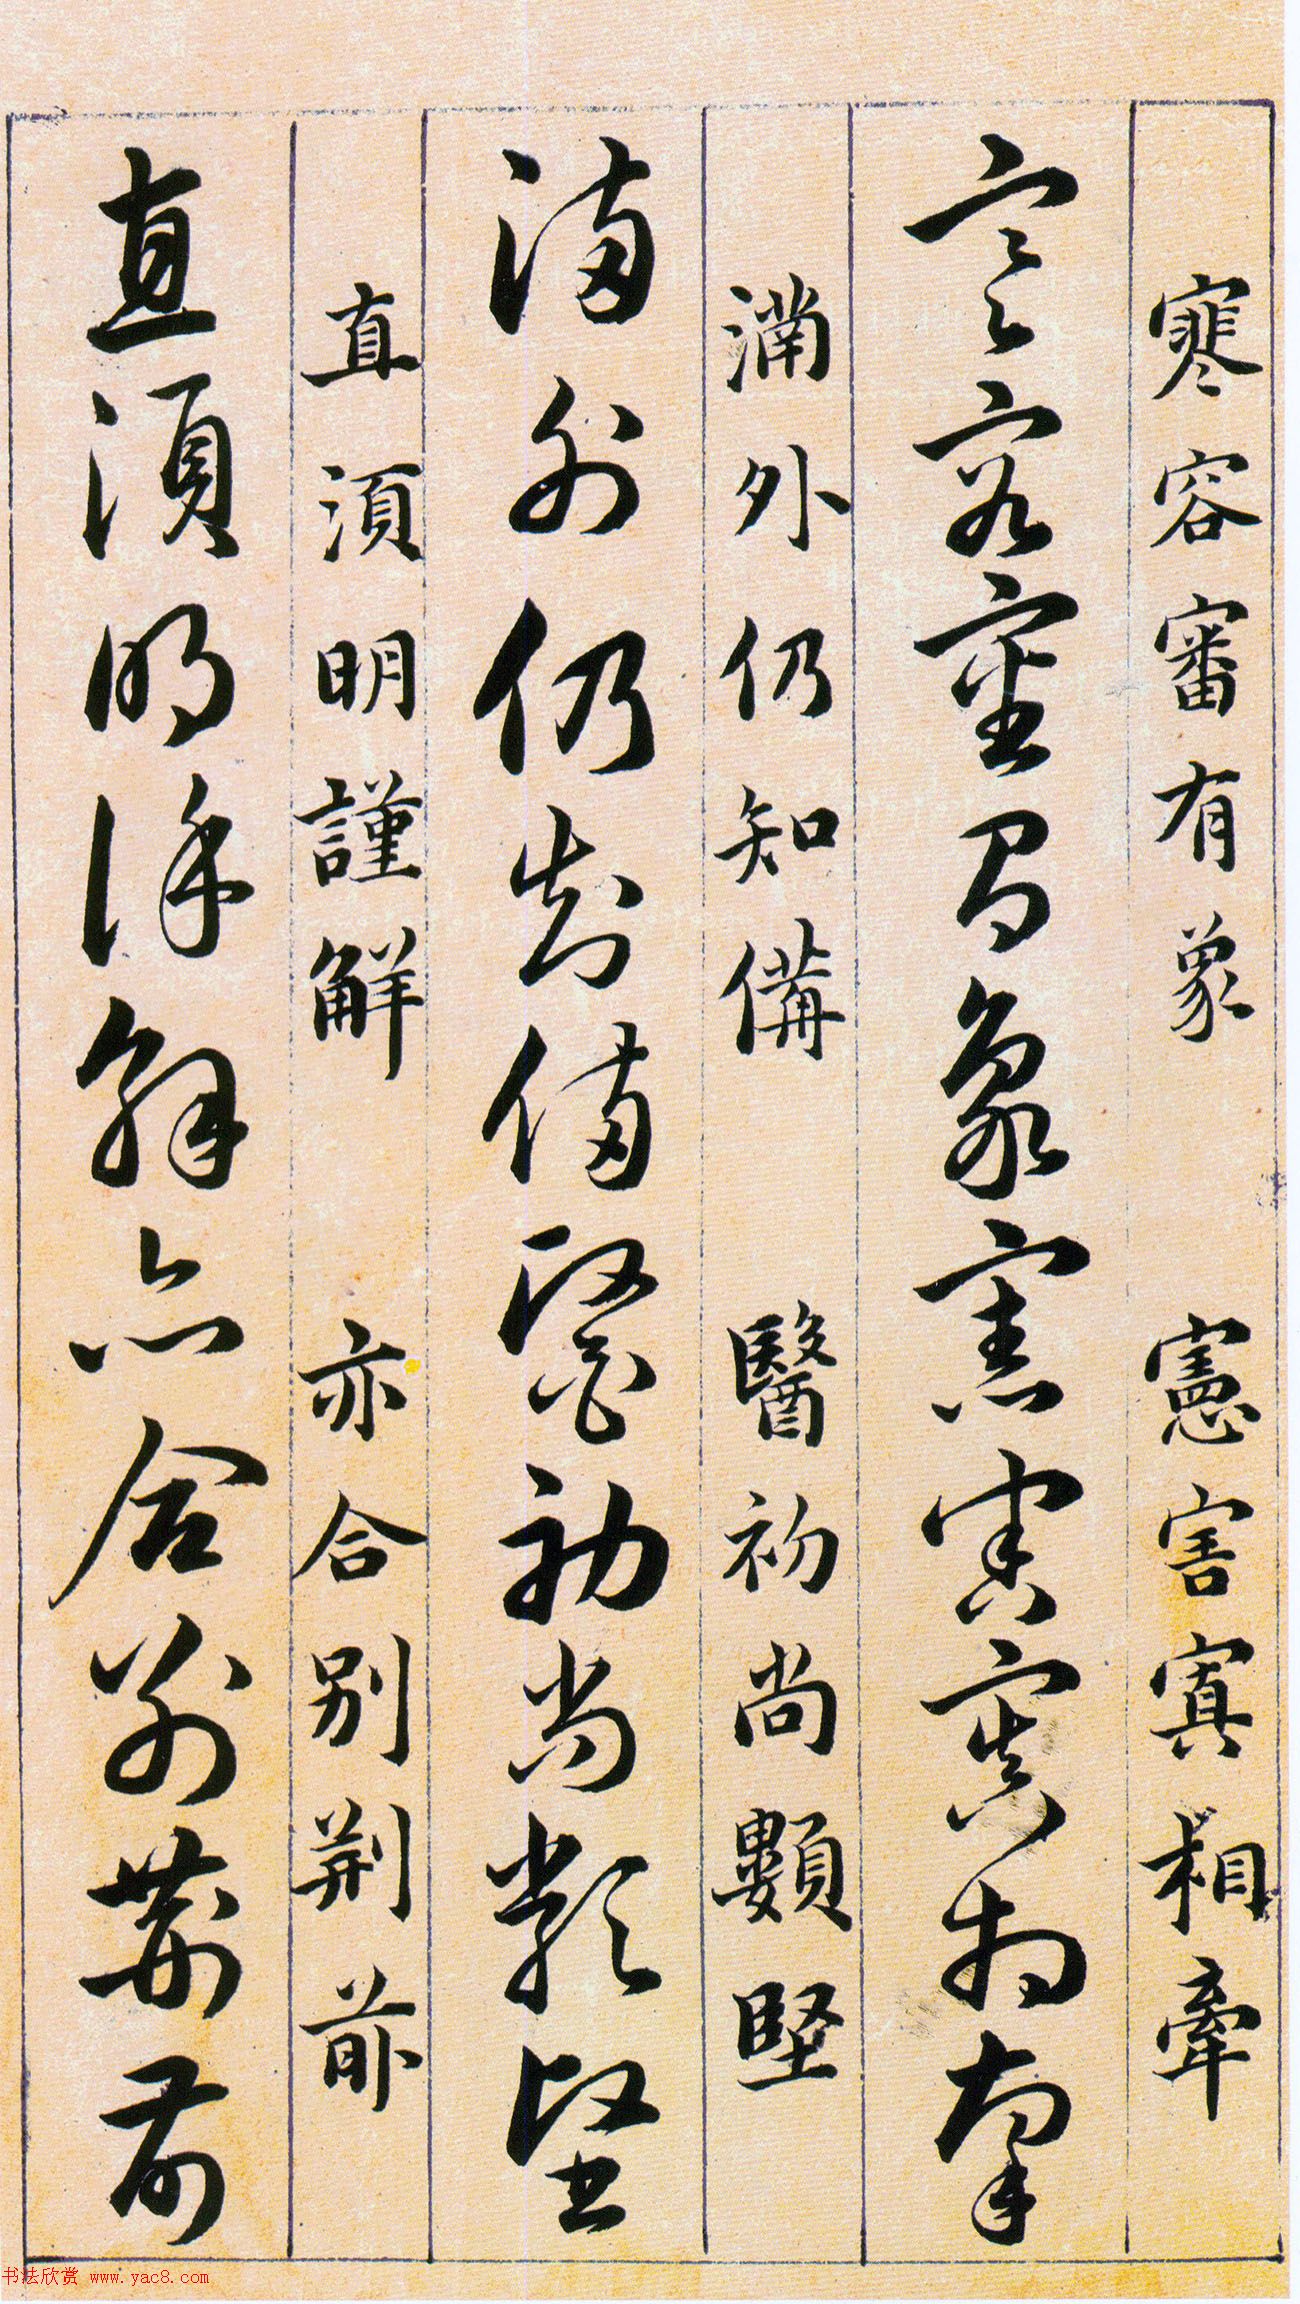 寒容審有象　憲害寘相牽
寒容審有象憲害寘相牽
滿外仍知備　醫初尚顆堅
滿外仍知備醫初尚堅
直須明謹解　亦合別荆前
直須明謹解亦合別荆前
书法欣赏 www.yac8.com